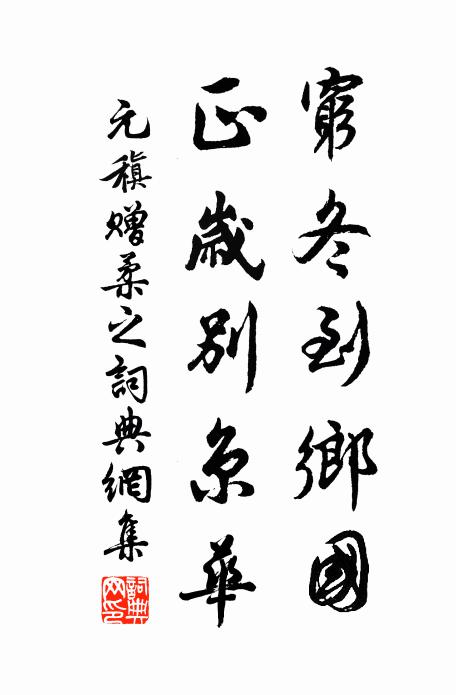 窮冬到鄉國
正歲別京華
元稹贈柔之詞典網集